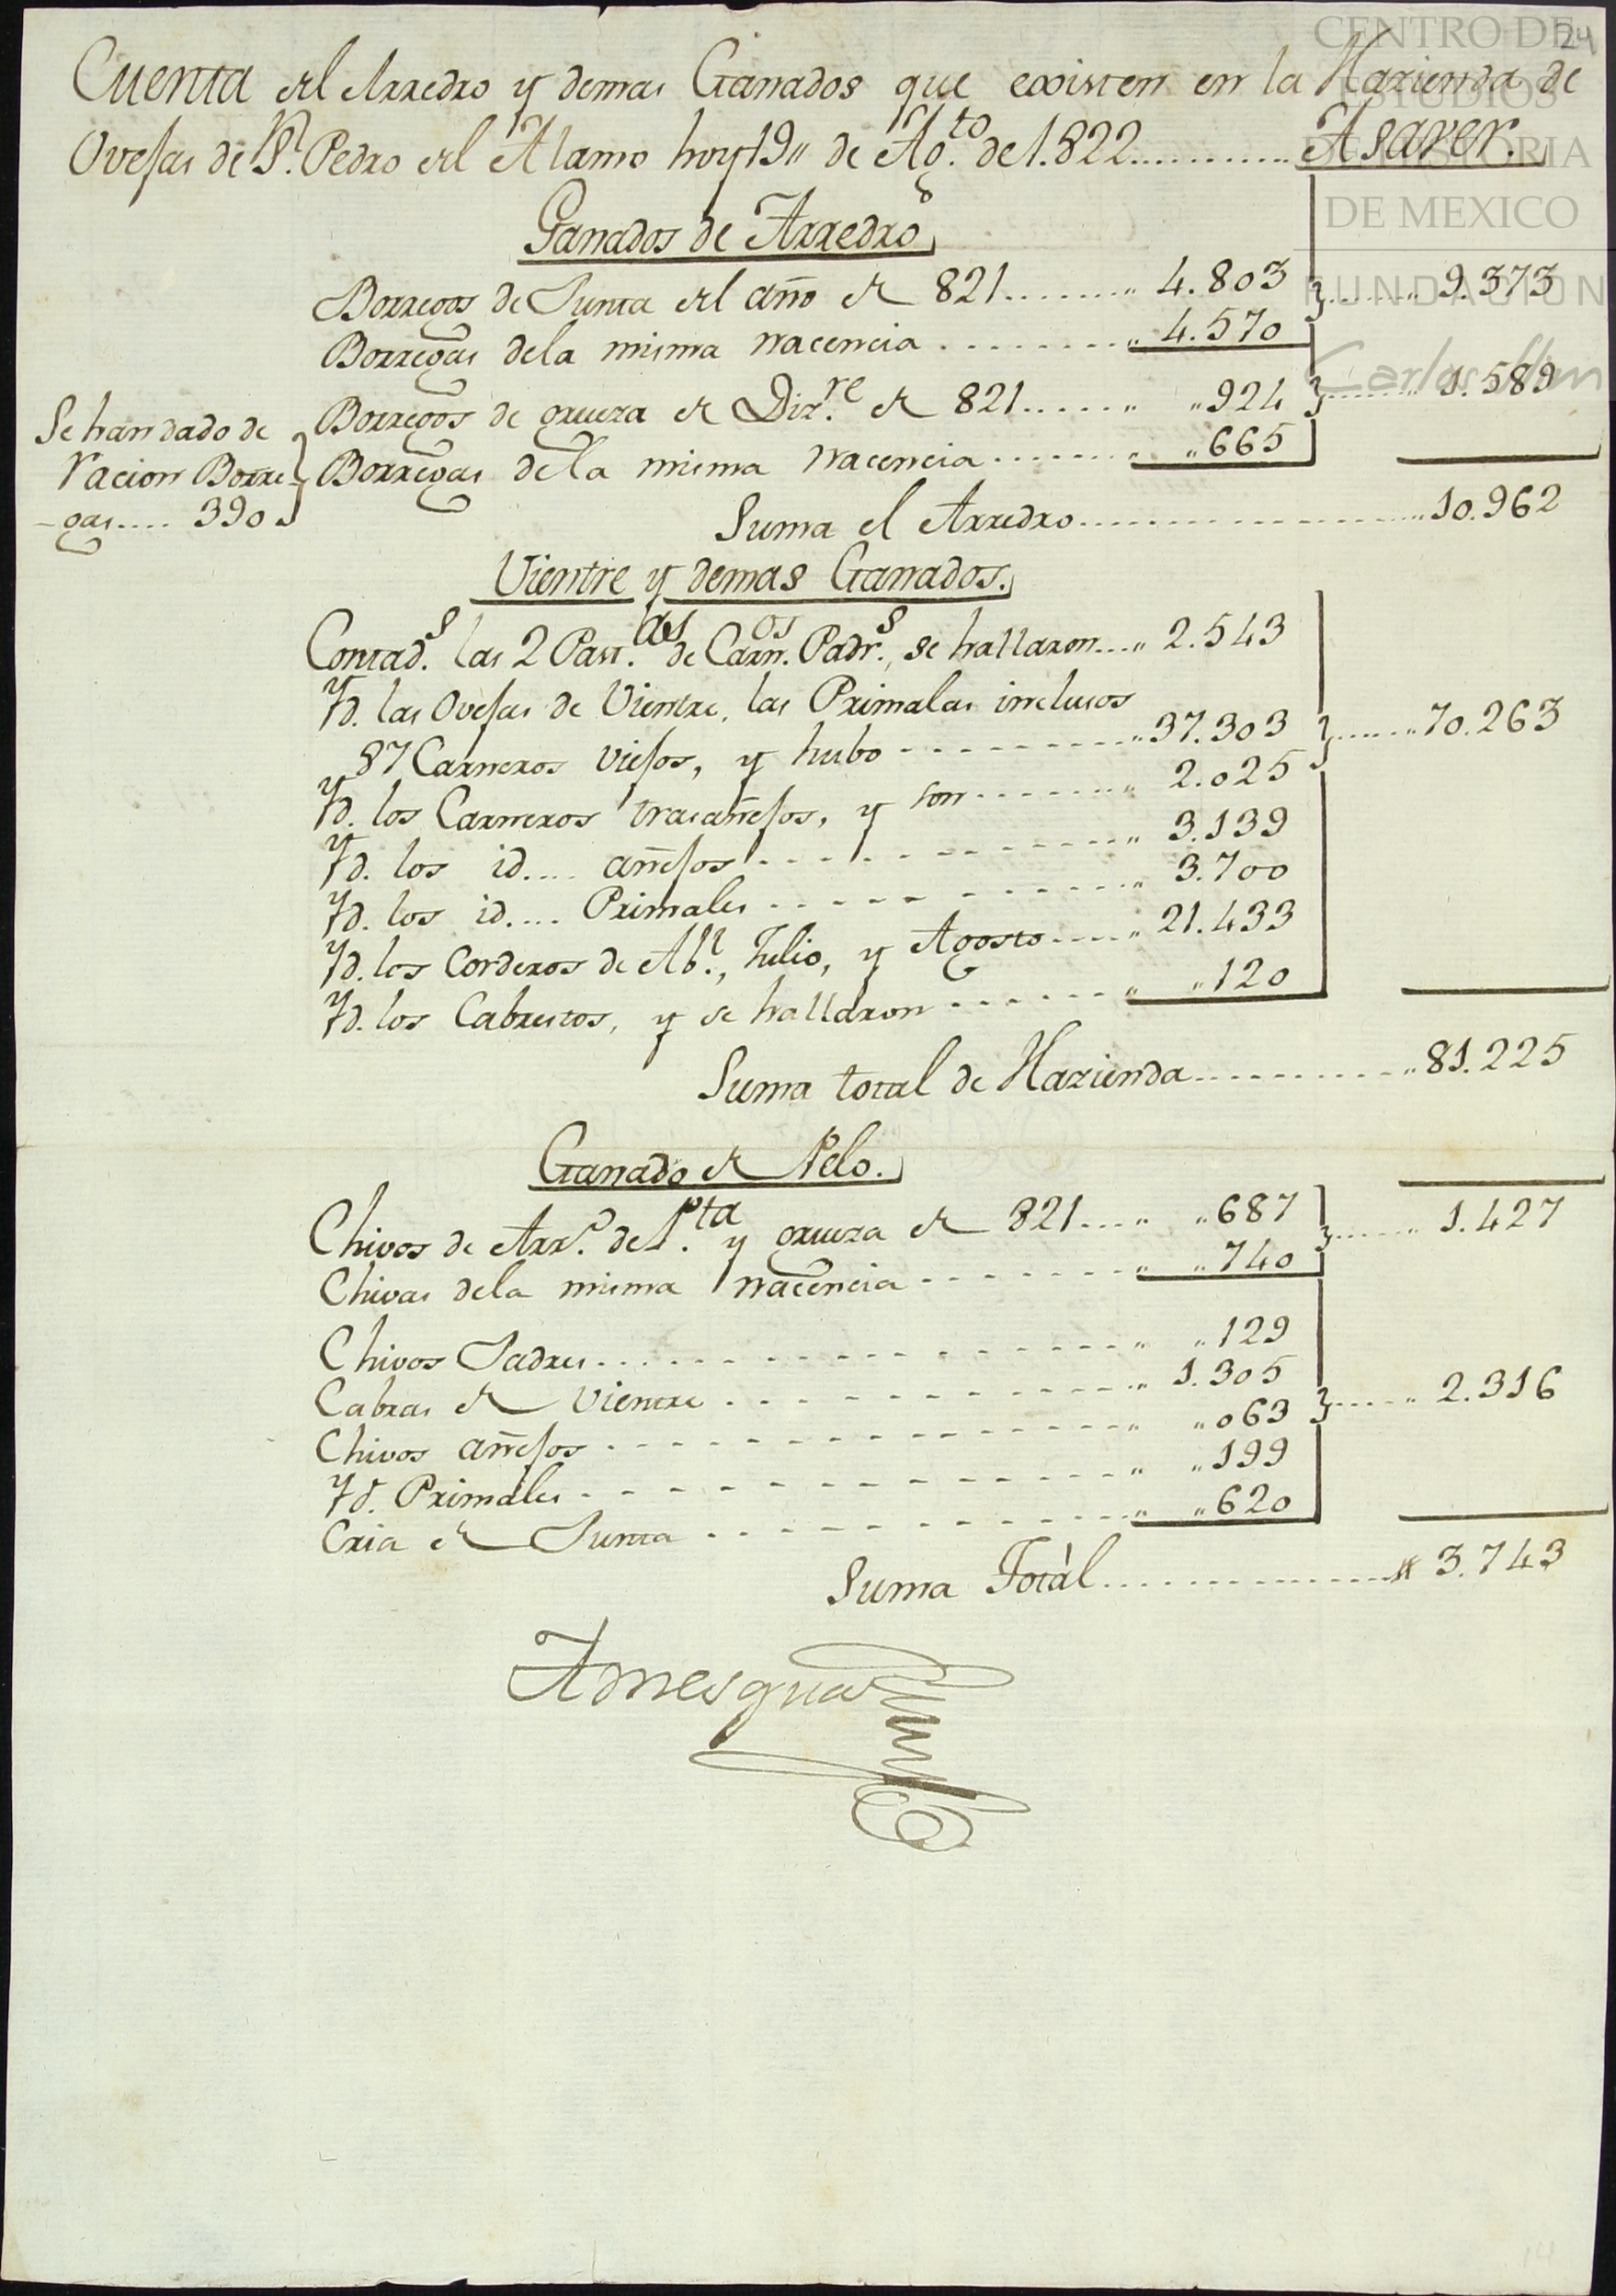 CENTRO DE
ESTUDIOS
DE HISTORIA
DE MEXICO
FUNDACION
Carlos Slim
24
Cuenta del Arredro y demas Ganados que existen en la Hazienda de
Ovejas de Sn. Pedro del Alamo hoy 19,, de Agto. de 1.822............ Asaver.
Ganados de Arredro
Borregos de Punta del año de 821......... ,, 4.803 }....... ,, 9.373
Borregas dela misma nacencia ......... ,, 4.570
Borregos de gruesa de Dizre. de 821...... ,, ,,924 }....... ,, 1.589
Borregas dela misma nacencia....... ,, ,,665
Se han dado de
racion Borre-
-gas.... 390
Suma el Arredro................... ,,10.962
Vientre y demas Ganados.
Contads. las 2 Partdas. de Carnos. Padrs., se hallaron.... ,, 2.543
Yd. las Ovejas de Vientre, las Primalas inclusos
87 Carneros viejos, y hubo - - - - - - - - - ,,37.303 }...... ,,70.263
Yd. los Carneros trasañejos, y son........ ,, 2.025
Yd. los id.... añejos - - - - - - - - - ,, 3.139
Yd. los id.... Primales - - - - - - - - - ,, 3.700
Yd. los Corderos de Abl., Julio, y Agosto..... ,, 21.433
Yd. los Cabrestos, y se hallaron - - - - - - ,, ,,120
Suma total de Hazienda............ ,,81.225
Ganado de Pelo.
Chivos de Arro. de Pta. y gruesa de 821.... ,, ,,687 }...... ,, 1.427
Chivas dela misma nacencia - - - - - - - ,, ,,740
Chivos Padres. . . . . . . . . . . . . . . ,, ,,129
Cabras de Vientre . . . . . . . . . . . . ,, 1.305
Chivos añejos . . . . . . . . . . . . . . ,, ,,063 }..... ,, 2.316
Yd. Primales . . . . . . . . . . . . . . ,, ,,199
Cria de Punta . . . . . . . . . . . . . . ,, ,,620
Suma Totàl................. ,, 3.743
Amesqua